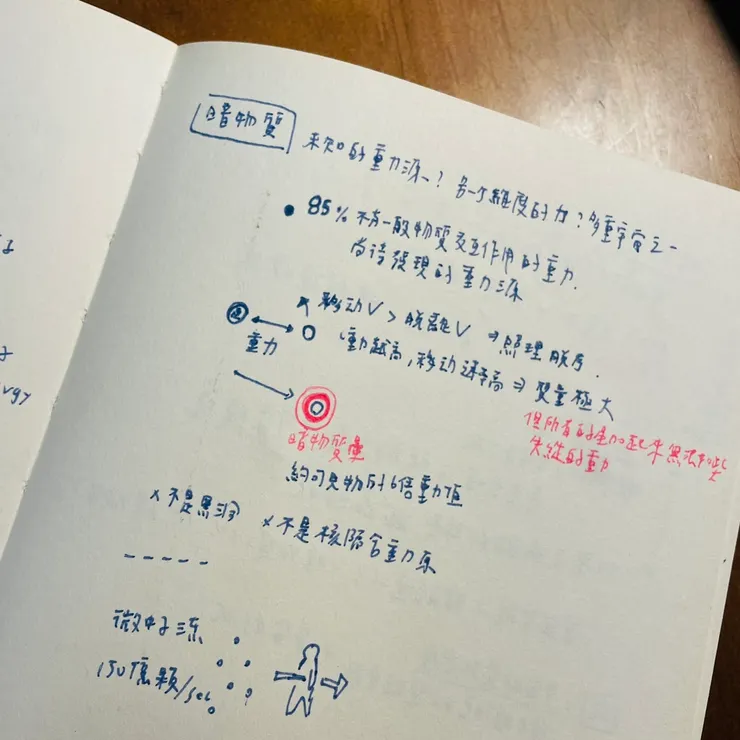 暗物質
未知的重力源? 另一個維度的力? 多重宇宙之一
85% 不有一般物質交互作用的重力.
尚待發現的重力源
移动V > 脫離V ⇒ 照理脫序.
重力
重力越高, 移动速率高 ⇒ 質量極大
但所有的星加起來無法
失蹤的重力
暗物質暈
約可見物的6倍重力值
x 不是黑洞
x 不是核融合重力系
微中子流
150億顆/sec
vgy